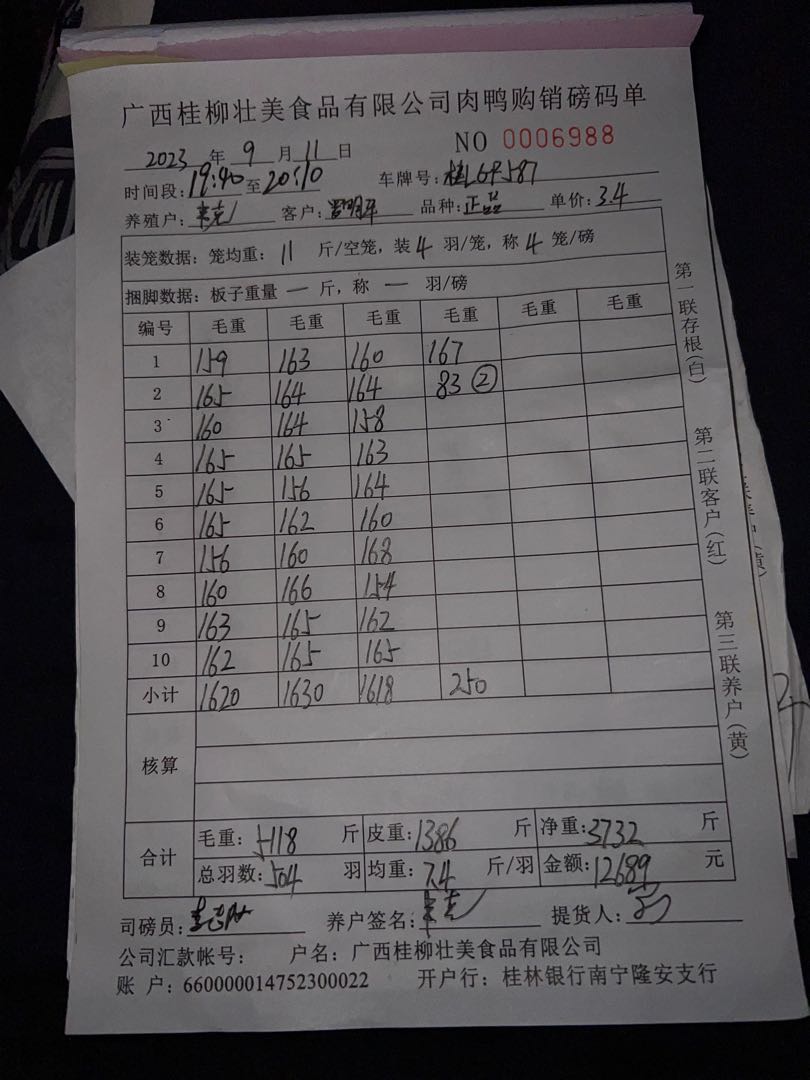 广西桂柳壮美食品有限公司肉鸭购销磅码单
NO 0006988
2023 年 9 月 11 日
时间段: 19:40 至 20:10 车牌号: 桂L64587
养殖户: 客户: 品种: 正品 单价: 3.4
装笼数据: 笼均重: 11 斤/空笼, 装 4 羽/笼, 称 4 笼/磅
捆脚数据: 板子重量 — 斤, 称 — 羽/磅
编号 毛重 毛重 毛重 毛重 毛重 毛重
1 159 163 160 167
2 165 164 164 83 ②
3 160 164 158
4 165 165 163
5 165 156 164
6 165 162 160
7 156 160 168
8 160 166 154
9 163 165 162
10 162 165 165
小计 1620 1630 1618 250
核算
合计 毛重: 5118 斤 皮重: 1386 斤 净重: 3732 斤
总羽数: 504 羽 均重: 7.4 斤/羽 金额: 12689 元
司磅员: 养户签名: 提货人:
公司汇款帐号: 户名: 广西桂柳壮美食品有限公司
账 户: 660000014752300022 开户行: 桂林银行南宁隆安支行
第一联存根(白)
第二联客户(红)
第三联养户(黄)